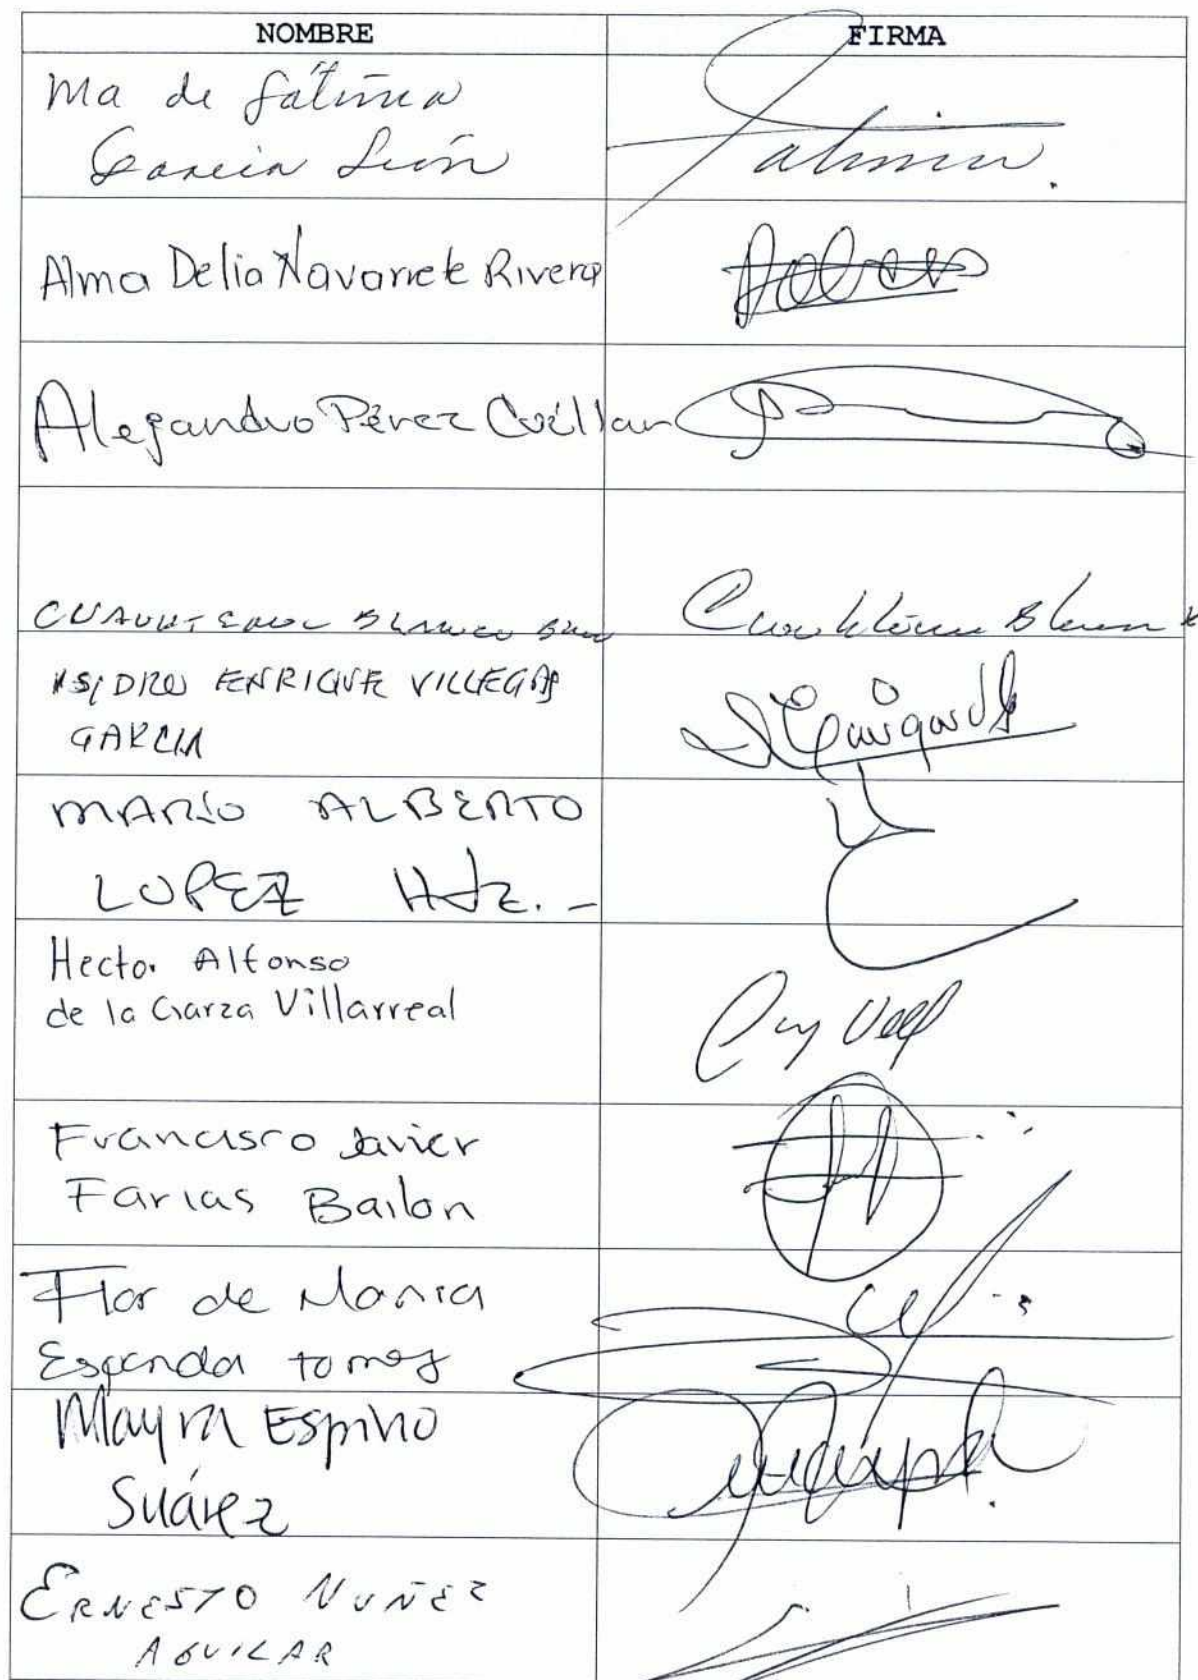 NOMBRE FIRMA
Ma de Fátima
García León
Fatima.
Alma Delia Navarrete Rivera
Alejandro Pérez Cuéllar
CUAUHTEMOC BLANCO BRAVO
Cuauhtémoc Blanco
ISIDRO ENRIQUE VILLEGAS
GARCIA
MARIO ALBERTO
LOPEZ Hdz.-
Hector Alfonso
de la Garza Villarreal
Francisco Javier
Farias Bailon
Flor de Maria
Esponda torres
Mayra Espino
Suárez
ERNESTO NUÑEZ
AGUILAR